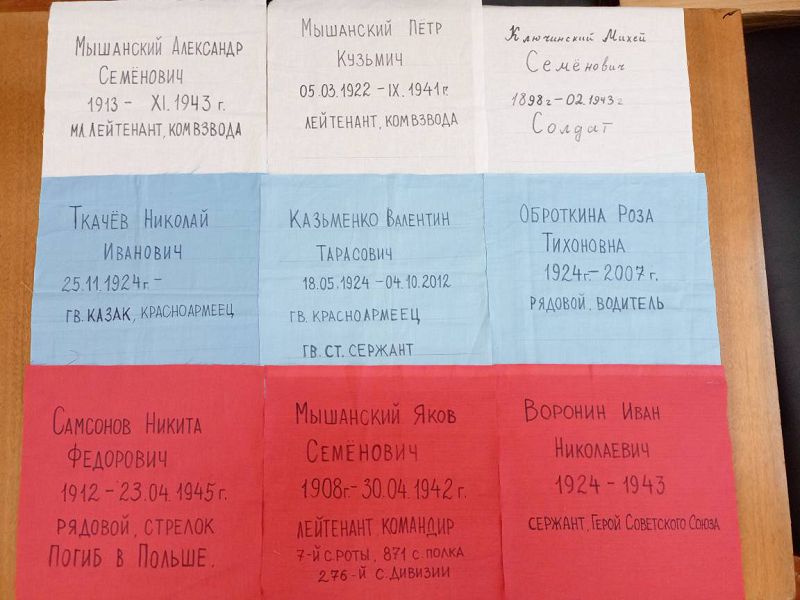 Мышанский Александр
Семёнович
1913 – XI.1943 г.
мл.лейтенант, комвзвода
Мышанский Пётр
Кузьмич
05.03.1922 – IX.1941 г.
лейтенант, комвзвода
Ключинский Михей
Семёнович
1898 г – 02.1943 г
Солдат
Ткачёв Николай
Иванович
25.11.1924 г. –
гв. казак, красноармеец
Казьменко Валентин
Тарасович
18.05.1924 – 04.10.2012
гв. красноармеец
гв. ст. сержант
Оброткина Роза
Тихоновна
1924 г. – 2007 г.
рядовой, водитель
Самсонов Никита
Федорович
1912 – 23.04.1945 г.
рядовой, стрелок
Погиб в Польше.
Мышанский Яков
Семёнович
1908 г. – 30.04.1942 г.
лейтенант командир
7-й с.роты, 871 с. полка
276-й с. дивизии
Воронин Иван
Николаевич
1924 – 1943
сержант, Герой Советского Союза